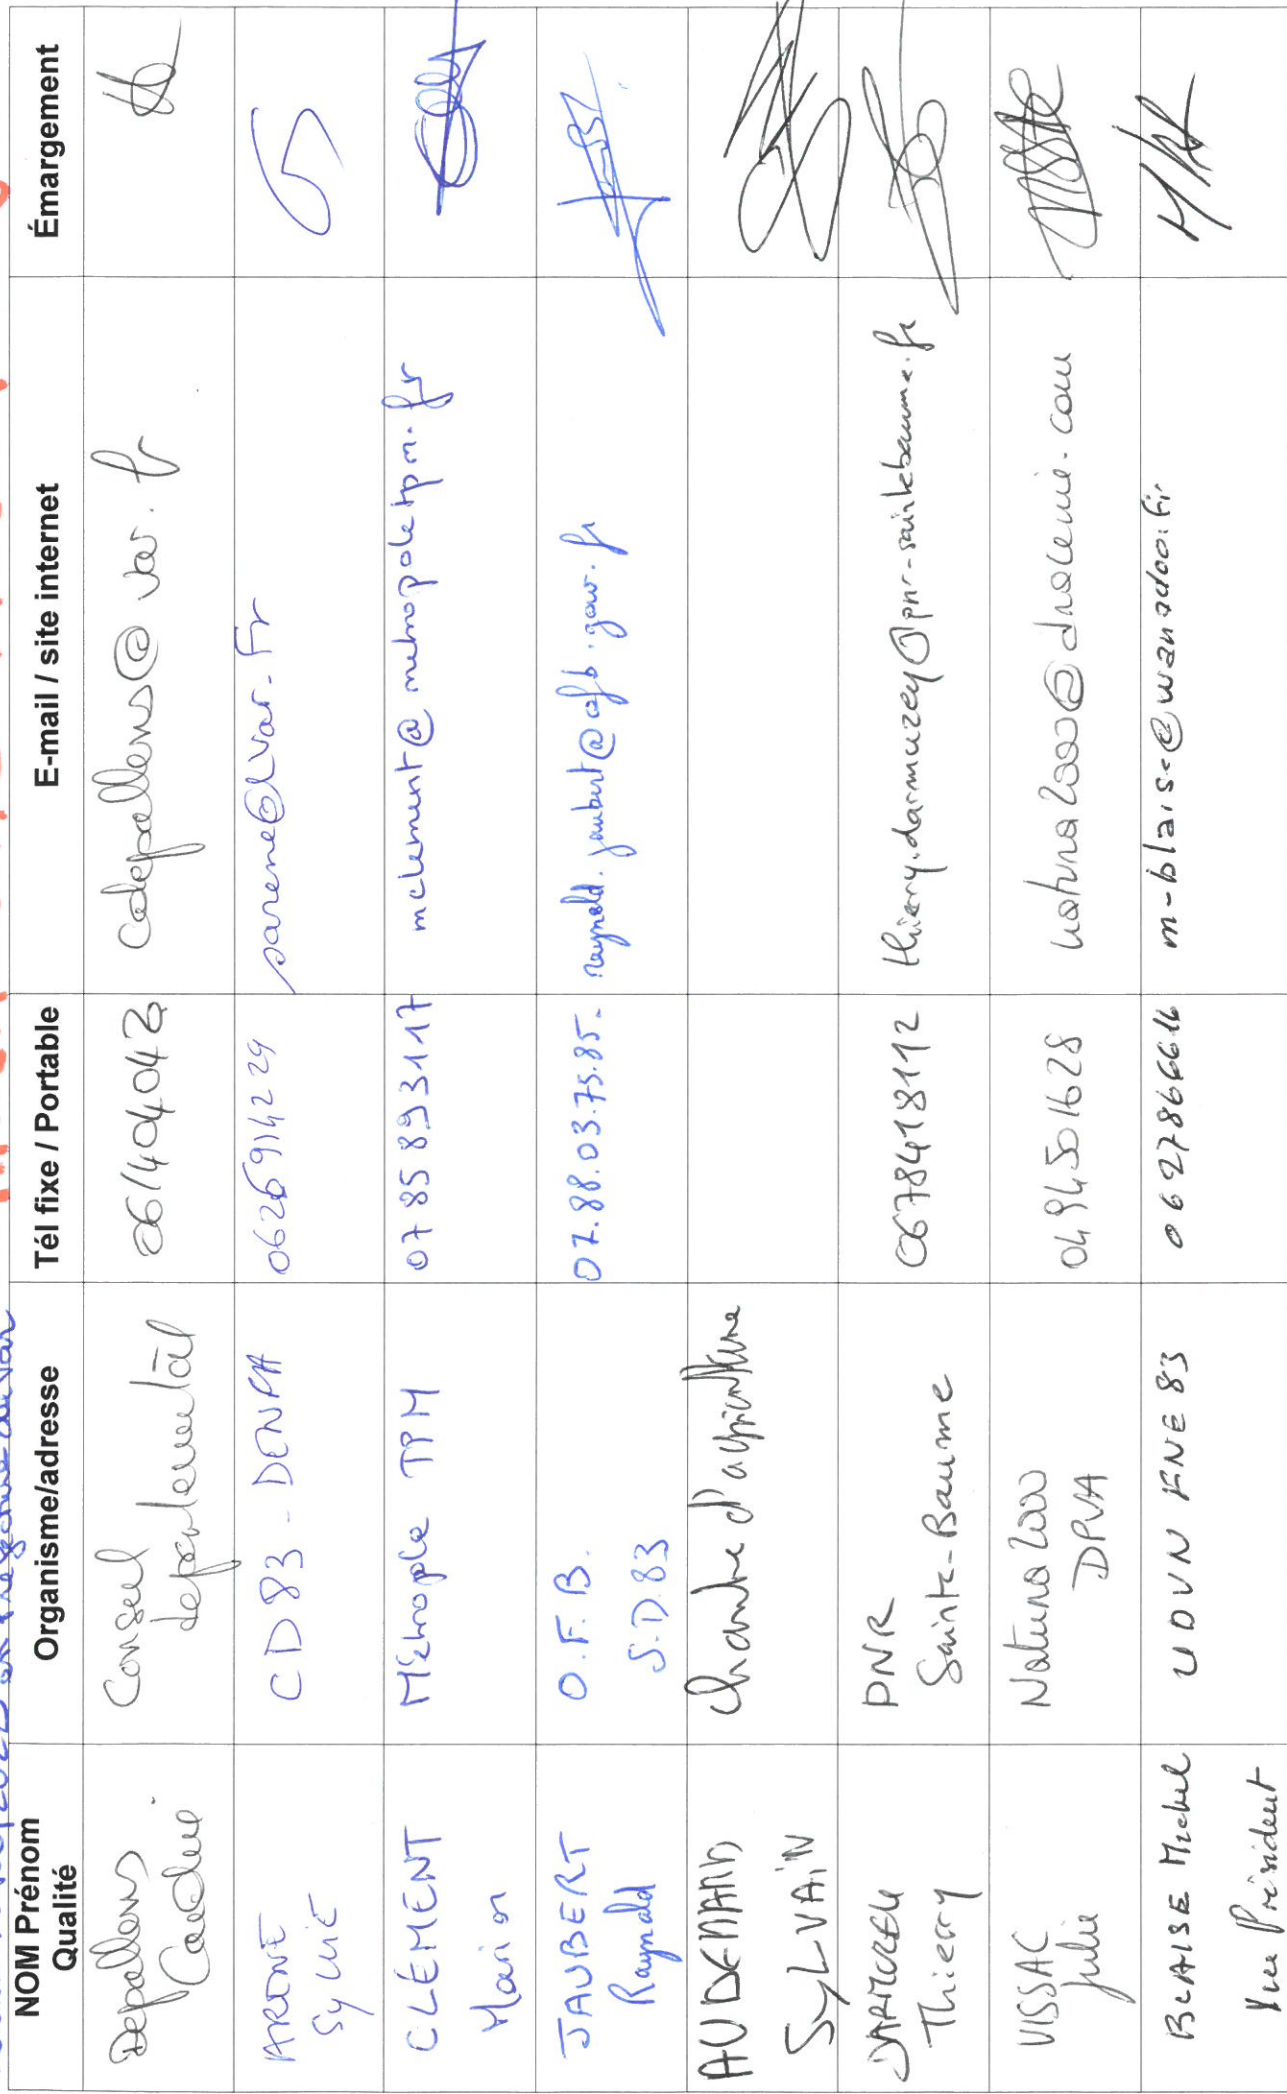 NOM Prénom
Qualité
Organisme/adresse
Tél fixe / Portable
E-mail / site internet
Émargement
Depallens
Conseil
departemental
061404042
cdepallens@var.fr
ARENE
Sylvie
CD83 - DENPA
0626914229
sarene@var.fr
CLÉMENT
Marion
Métropole TPM
0785893117
mclement@metropoletpm.fr
JAUBERT
Raynald
O.F.B.
S.D.83
07.88.03.75.85.
raynald.jaubert@ofb.gouv.fr
AUDEMARD
SYLVAIN
Chambre d'agriculture
DARMUZEY
Thierry
PNR
Sainte-Baume
0678418112
thierry.darmuzey@pnr-saintebaume.fr
VISSAC
Julie
Natura 2000
DPVA
0494501628
natura2000@dracenie.com
BLAISE Michel
Vice Président
UDVN FNE 83
0627866616
m-blaise@wanadoo.fr